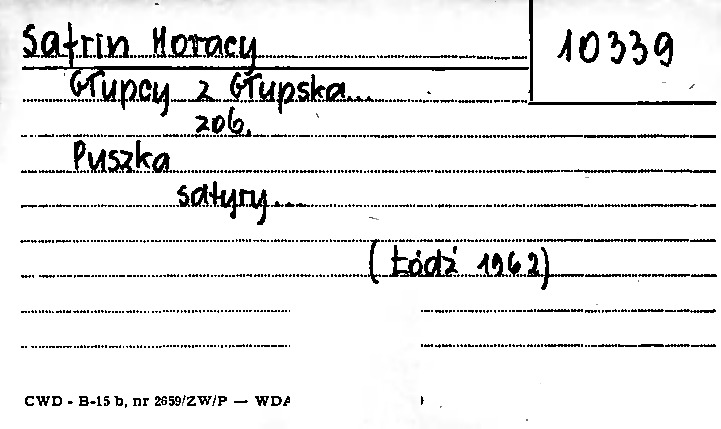 Safrin Horacy
10339
Głupcy z Głupska...
206.
Puszka
satyry...
(Łódź 1962)
CWD - B-15 b, nr 2659/ZW/P — WDA